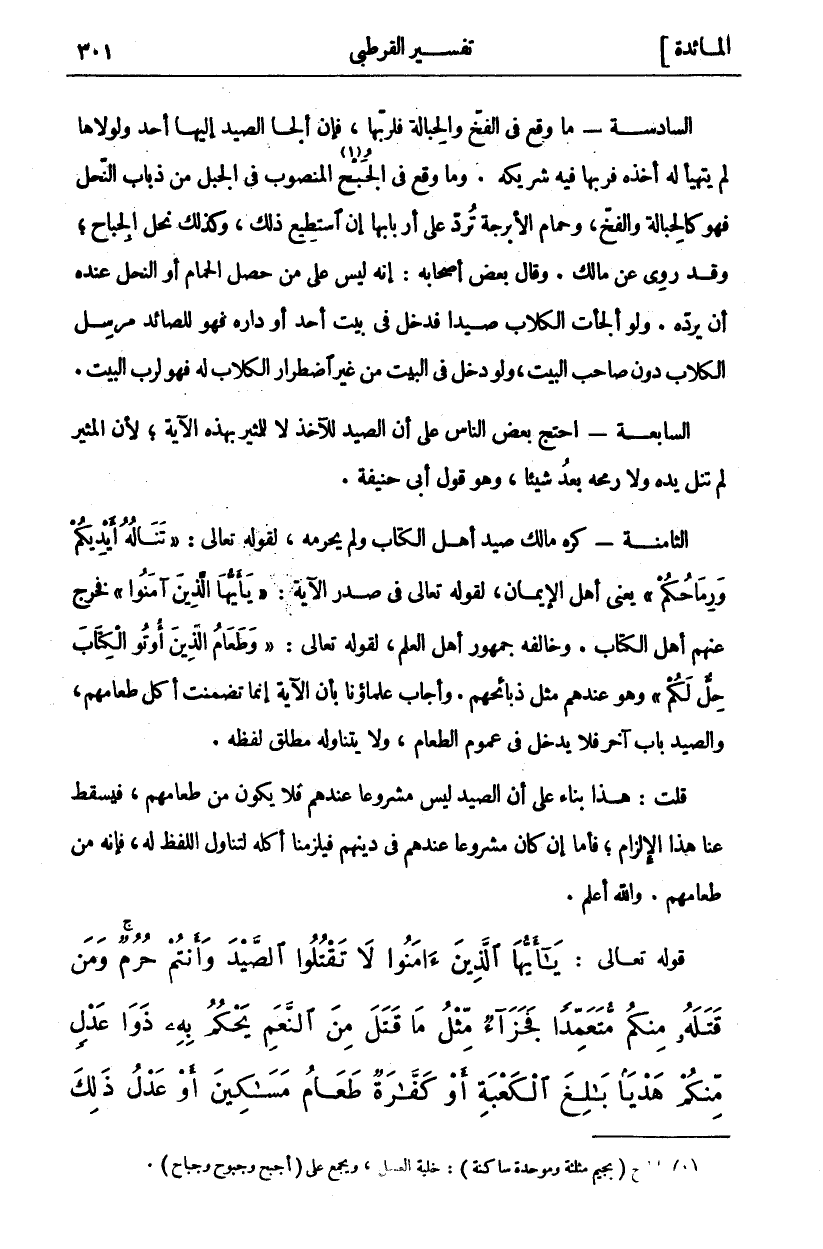 المائدة ] تفسير القرطبي ٣٠١
السادسة — ما وقع فى الفخّ والحِبالة فلربّها ، فإن ألجأ الصيد إليها أحد ولولاها
لم يتهيأ له أخذه فربها فيه شريكه . وما وقع فى الجَُبْح (١) المنصوب فى الجبل من ذباب النّحل
فهو كالحِبالة والفخّ ، وحمام الأبرجة تُردّ على أربابها إن ٱستطِيع ذلك ، وكذلك نحل الجِباح ؛
وقد روى عن مالك . وقال بعض أصحابه : إنه ليس على من حصل الحمام أو النحل عنده
أن يردّه . ولو ألجأت الكلاب صيدا فدخل فى بيت أحد أو داره فهو للصائد مرسِل
الكلاب دون صاحب البيت ، ولو دخل فى البيت من غير ٱضطرار الكلاب له فهو لرب البيت .
السابعة — احتج بعض الناس على أن الصيد للآخذ لا للثير بهذه الآية ؛ لأن المثير
لم تنل يده ولا رمحه بعدُ شيئا ، وهو قول أبى حنيفة .
الثامنة — كره مالك صيد أهل الكتاب ولم يحرمه ، لقوله تعالى : « تَنَالُهُ أَيْدِيكُمْ
وَرِمَاحُكُمْ » يعنى أهل الإيمان ، لقوله تعالى فى صدر الآية : « يَأَيُّهَا الَّذِينَ آمَنُوا » فخرج
عنهم أهل الكتاب . وخالفه جمهور أهل العلم ، لقوله تعالى : « وَطَعَامُ الَّذِينَ أُوتُو الْكِتَابَ
حِلٌّ لَكُمْ » وهو عندهم مثل ذبائحهم . وأجاب علماؤنا بأن الآية إنما تضمنت أكل طعامهم ،
والصيد باب آخر فلا يدخل فى عموم الطعام ، ولا يتناوله مطلق لفظه .
قلت : هذا بناء على أن الصيد ليس مشروعا عندهم فلا يكون من طعامهم ، فيسقط
عنا هذا الإلزام ؛ فأما إن كان مشروعا عندهم فى دينهم فيلزمنا أكله لتناول اللفظ له ، فإنه من
طعامهم . والله أعلم .
قوله تعالى : يَٰٓأَيُّهَا ٱلَّذِينَ ءَامَنُوا لَا تَقْتُلُوا ٱلصَّيْدَ وَأَنتُمْ حُرُمٌ ۚ وَمَن
قَتَلَهُۥ مِنكُم مُّتَعَمِّدًا فَجَزَآءٌ مِّثْلُ مَا قَتَلَ مِنَ ٱلنَّعَمِ يَحْكُمُ بِهِۦ ذَوَا عَدْلٍ
مِّنكُمْ هَدْيًۢا بَٰلِغَ ٱلْكَعْبَةِ أَوْ كَفَّٰرَةٌ طَعَامُ مَسَٰكِينَ أَوْ عَدْلُ ذَٰلِكَ
(١) (بجيم مثلثة وموحدة ساكنة) : خلية العسل ، ويجمع على (أجبح وجبوح وجباح) .